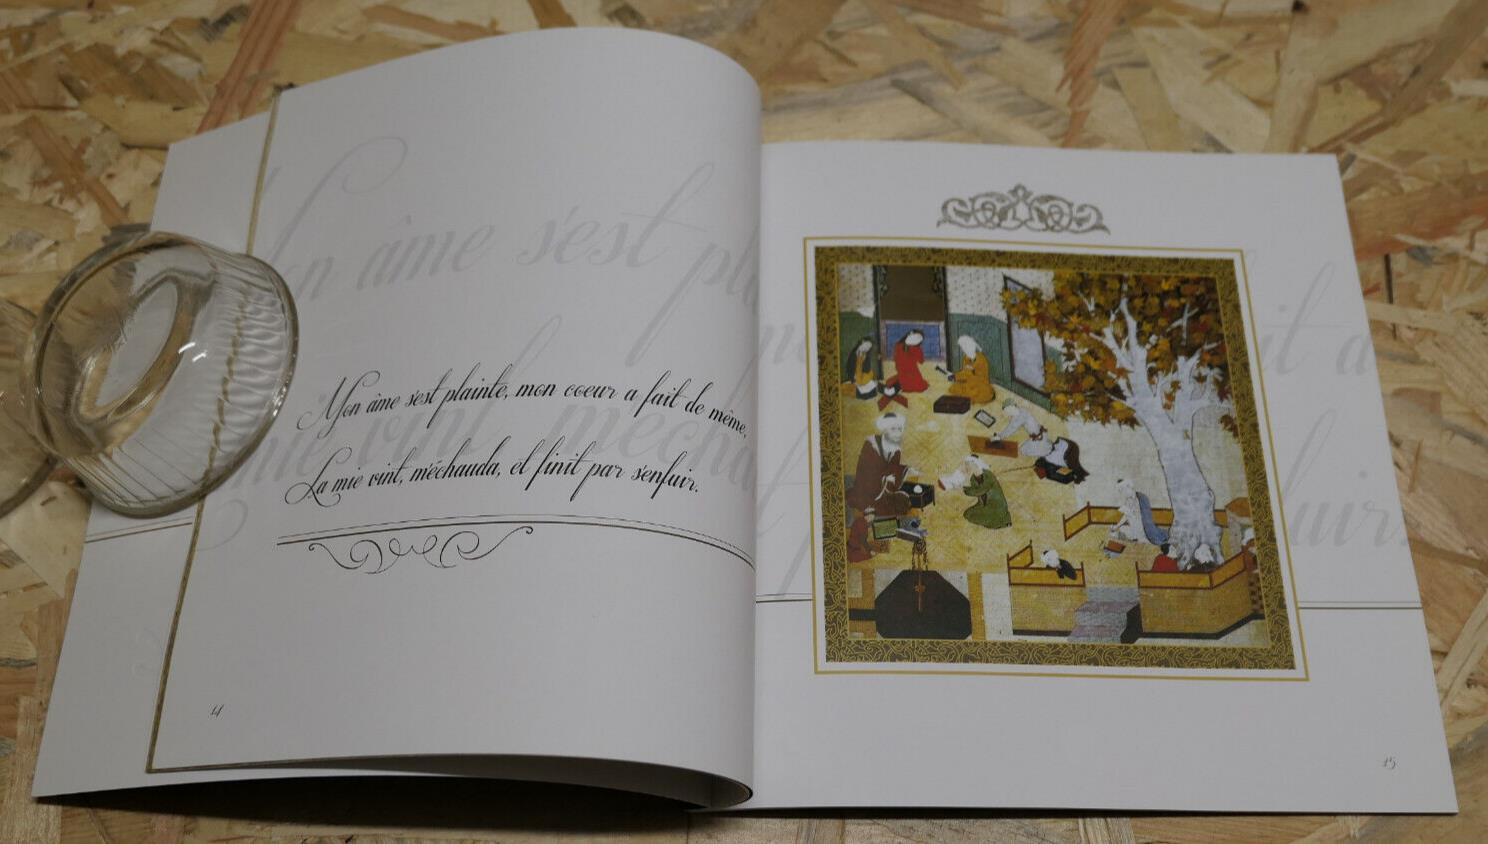 Mon âme s'est plainte, mon coeur a fait de même,
La mie vint, m'échauda, et finit par s'enfuir.
14
15